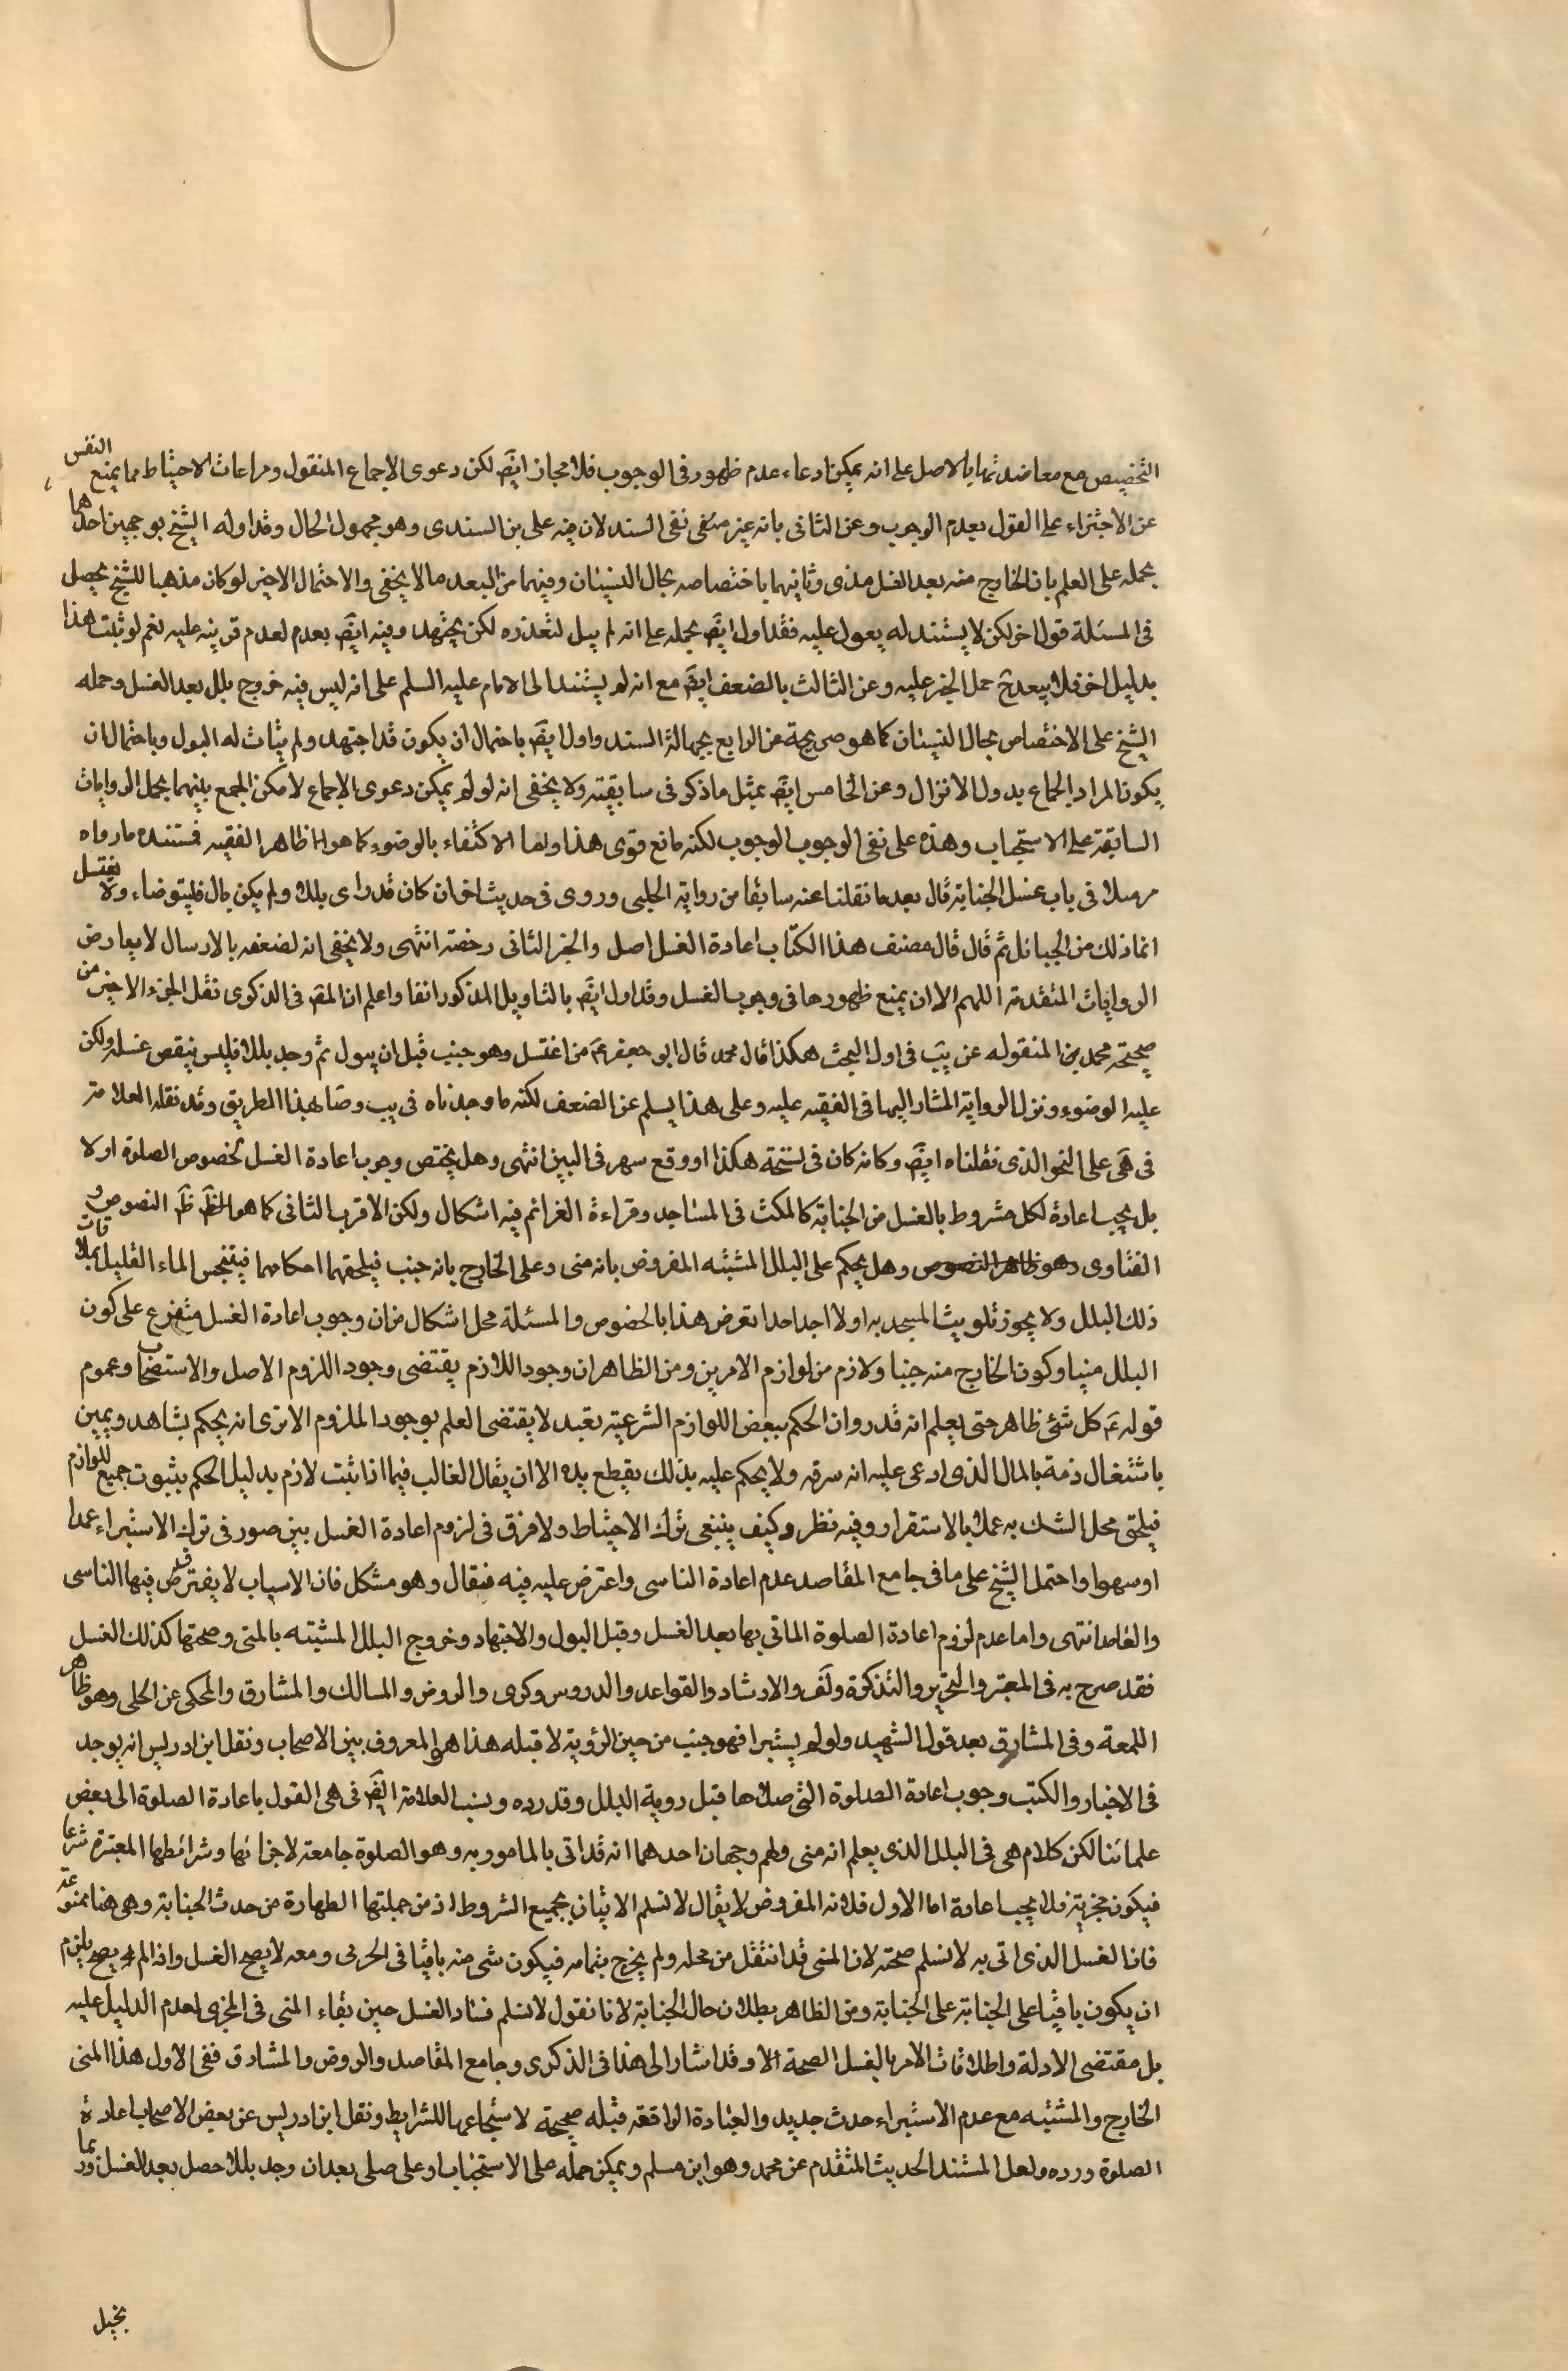 التخصيص مع معاضدتها بالاصل على انه يمكن ادعاء عدم ظهور فى الوجوب فلا مجاز ايضً لكن دعوى الاجماع المنقول ومراعات الاحتياط مما يمنع النفس
عن الاجتزاء على القول بعدم الوجوب وعن الثانى بانه غير منفى نفى السند لان فيه على بن السندى وهو مجهول الحال وقد اوله الشيخ بوجهين احدهما
بحمله على العلم بان الخارج منه بعد الغسل مذى وثانيهما باختصاصه بحال النسيان وفيهما من البعد ما لا يخفى والاحتمال الاخير لو كان مذهبا للشيخ يحصل
فى المسئلة قول اخر لكن لا يستند له يعول عليه فقد اول ايضً بحمله على انه لم يبل لتعذره لكن يجتهد وفيه ايضً بعدم لعدم قرينه عليه نعم لو ثبت هذا
بدليل اخر فلا يبعد ح حمل الخبر عليه وعن الثالث بالضعف ايضً مع انه لم يستند الى الامام عليه السلم على انه ليس فيه خروج بلل بعد الغسل وحمله
الشيخ على الاختصاص بحال النسيان كما هو صريحة عن الرابع بجهالة السند واول ايضً باحتمال ان يكون قد اجتهد ولم يتات له البول وباحتمال ان
يكون المراد الجماع بدول الانزال وعن الخامس ايضً بمثل ما ذكر فى سابقيته ولا يخفى انه لو لم يمكن دعوى الاجماع لامكن الجمع بينهما بحمل الروايات
السابقة على الاستحباب وهذه على نفى الوجوب الوجوب لكنه مانع قوى هذا واما الاكتفاء بالوضوء كما هو ظاهر الفقيه فستنده ما رواه
مرسلا فى باب غسل الجنابة قال بعد ما نقلنا عنه سابقا من رواية الحلبى وروى فى حديث اخر ان كان قد راى بللا ولم يكن بال فليتوضاء ولا يغتسل
انما ذلك من الحبائل ثم قال قال مصنف هذا الكتاب اعادة الغسل اصل والخبر الثانى رخصة انتهى ولا يخفى انه لضعفه بالارسال لا يعارض
الروايات المتقدمة اللهم الا ان يمنع ظهورها فى وجوب الغسل وقد اول ايضً بالتاويل المذكور انفا واعلم ان المصً فى الذكرى نقل الجزء الاخير من
صحيحة محمد من المنقوله عن يب فى اول البحث هكذا قال محمد قال ابو جعفر عَ من اغتسل وهو جنب قبل ان يبول ثم وجد بللا فليس ينقص غسله ولكن
عليه الوضوء ونزل الرواية المشار اليها فى الفقيه عليه وعلى هذا يسلم عن الضعف لكنه ما وجدناه فى يب وصا بهذا الطريق وقد نقله العلامة
فى هَى على النحو الذى نقلناه ايضً وكانه كان فى نسخته هكذا او وقع سهر فى البين انتهى وهل يختص وجوب اعادة الغسل بخصوص الصلوة اولا
بل يجب اعادة لكل مشروط بالغسل من الجنابة كالمكث فى المساجد وقراءة العزائم فيه اشكال ولكن الاقرب الثانى كما هو الظً ظَ النصوص و
الفتاوى وهو ظاهر النصوص وهل يحكم على البلل المشتبه المفروض بانه منى وعلى الخارج بانه جنب فيلحقهما احكامهما فيتنجس الماء القليل بملاقات
ذلك البلل ولا يجوز تلويث المسجد به اولا اجد احدا تعرض هذا بالخصوص والمسئلة محل اشكال من ان وجوب اعادة الغسل متفرع على كون
البلل منيا وكون الخارج منه جنبا ولازم من لوازم الامرين ومن الظاهر ان وجود اللازم يقتضى وجود اللزوم الاصل والاستصحاب وعموم
قوله عَ كل شئ ظاهر حتى يعلم انه قدر وان الحكم ببعض اللوازم الشرعية تعبد لا يقتضى العلم بوجود الملزوم الا ترى انه يحكم بشاهد ويمين
باشتغال ذمة بالمال الذى ادعى عليه انه سرقه ولا يحكم عليه بذلك بقطع يده الا ان يقال الغالب فيما اذا ثبت لازم بدليل الحكم بثبوت جميع اللوازم
فيلحق محل الشك به عملا بالاستقرار وفيه نظر وكيف ينبغى ترك الاحتياط ولا فرق فى لزوم اعادة الغسل بين صور فى ترك الاستبراء عمدا
او سهوا واحتمل الشيخ على ما فى جامع المقاصد عدم اعادة الناسى واعترض عليه فيه فقال وهو مشكل فان الاسباب لا يفترق فيها الناسى
والعامد انتهى واما عدم لزوم اعادة الصلوة الماتى بها بعد الغسل وقبل البول والاجتهاد وخروج البلل المشتبه بالمنى وصحتها كذلك الغسل
فقد صرح به فى المعتبر والتحرير والتذكرة ولَف والارشاد والقواعد والدروس وكرى والروض والمسالك والمشارق والمحكى عن الحلى وهو ظاهر
اللمعة وفى المشارق بعد قول الشهيد ولو لم يستبرا فهو جنب من حين الرؤية لا قبله هذا هو المعروف بين الاصحاب ونقل ابن ادريس انه يوجد
فى الاخبار والكتب وجوب اعادة الصلوة التى صلاها قبل روية البلل وقد رده ونسب العلامة ايضً فى هى القول باعادة الصلوة الى بعض
علمائنا لكن كلام هى فى البلل الذى يعلم انه منى ولهم وجهان احدهما انه قد اتى بالمامور به وهو الصلوة جامعة لاجزائها وشرائطها المعتبرة شرعا
فيكون مجزية فلا يجب اعادة اما الاول فلانه المفروض لا يقال لا نسلم الاتيان بجميع الشروط اذ من جملتها الطهارة من حدث الجنابة وهى هنا ممنوعة
فان الغسل الذى اتى به لا نسلم صحته لان المنى قد انتقل من محله ولم يخرج بتمامه فيكون شى منه باقيا فى الجرى ومعه لا يصح الغسل واذا لم يصح يلزم
ان يكون باقيا على الجنابة على الجنابة ومن الظاهر بطلان حال الجنابة لانا نقول لا نسلم فساد الغسل حين بقاء المنى فى المجرى لعدم الدليل عليه
بل مقتضى الادلة واطلاقات الامر بالغسل الصحة الا وقد اشار الى هذا فى الذكرى وجامع المقاصد والروض والمشارق ففى الاول هذا المنى
الخارج والمشتبه مع عدم الاستبراء حدث جديد والعبادة الواقعة قبله صحيحة لاستجماعها للشرايط ونقل ابن ادريس عن بعض الاصحاب اعادة
الصلوة ورده ولعل المستند الحديث المتقدم عن محمد وهو ابن مسلم ويمكن حمله على الاستحباب او على صلى بعد ان وجد بللا حصل بعد الغسل وربما
بخيل